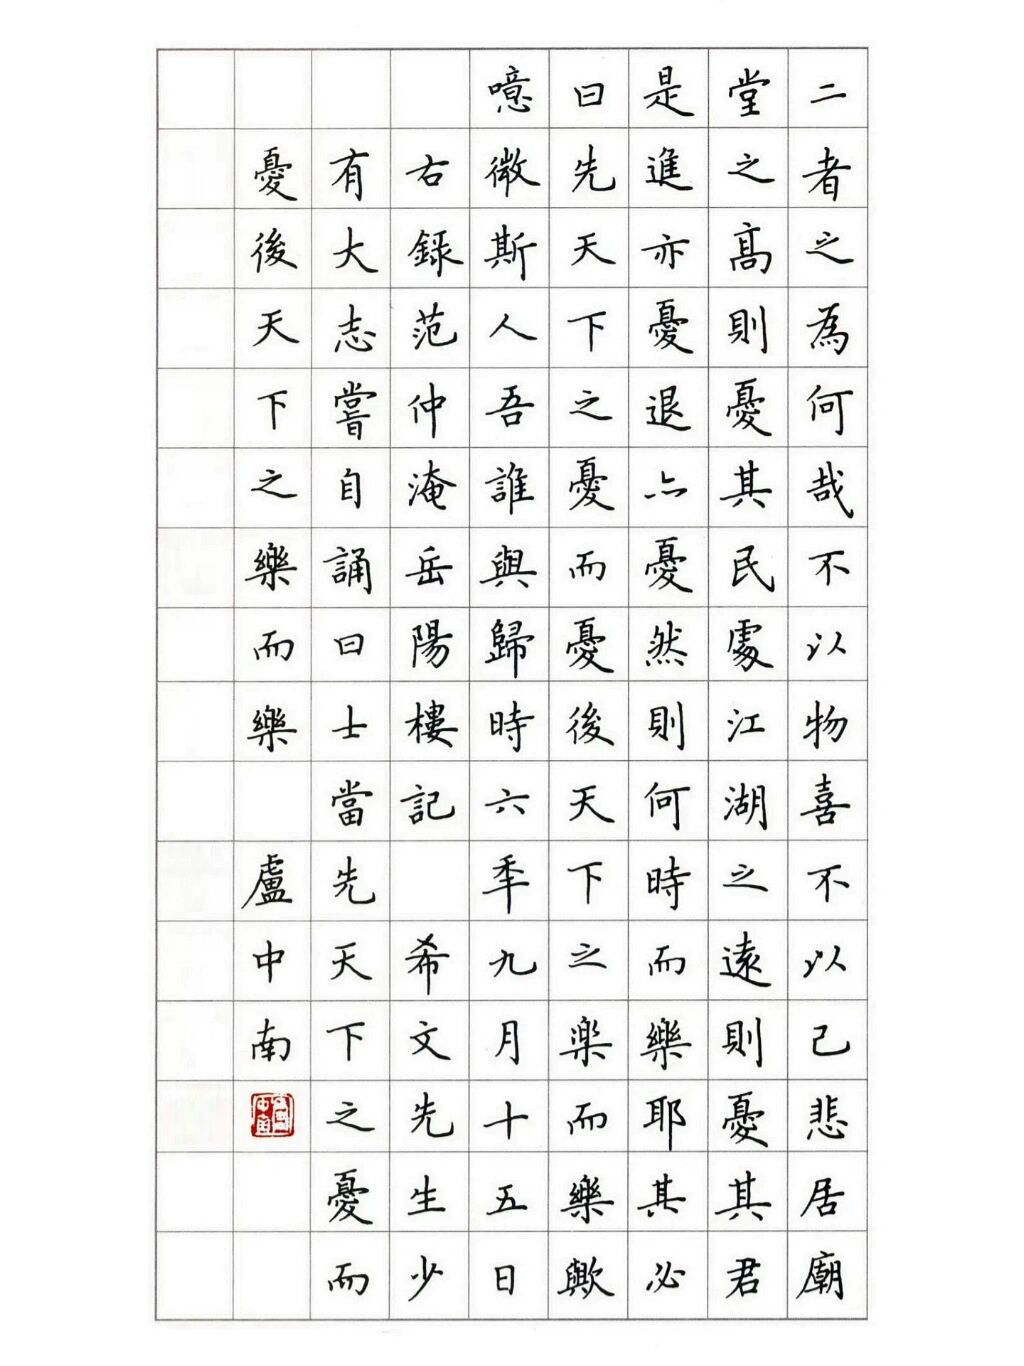 二者之為何哉不以物喜不以己悲居廟
堂之高則憂其民處江湖之遠則憂其君
是進亦憂退亦憂然則何時而樂耶其必
曰先天下之憂而憂後天下之樂而樂歟
噫微斯人吾誰與歸時六年九月十五日
右錄范仲淹岳陽樓記 希文先生少
有大志嘗自誦曰士當先天下之憂而
憂後天下之樂而樂 盧中南